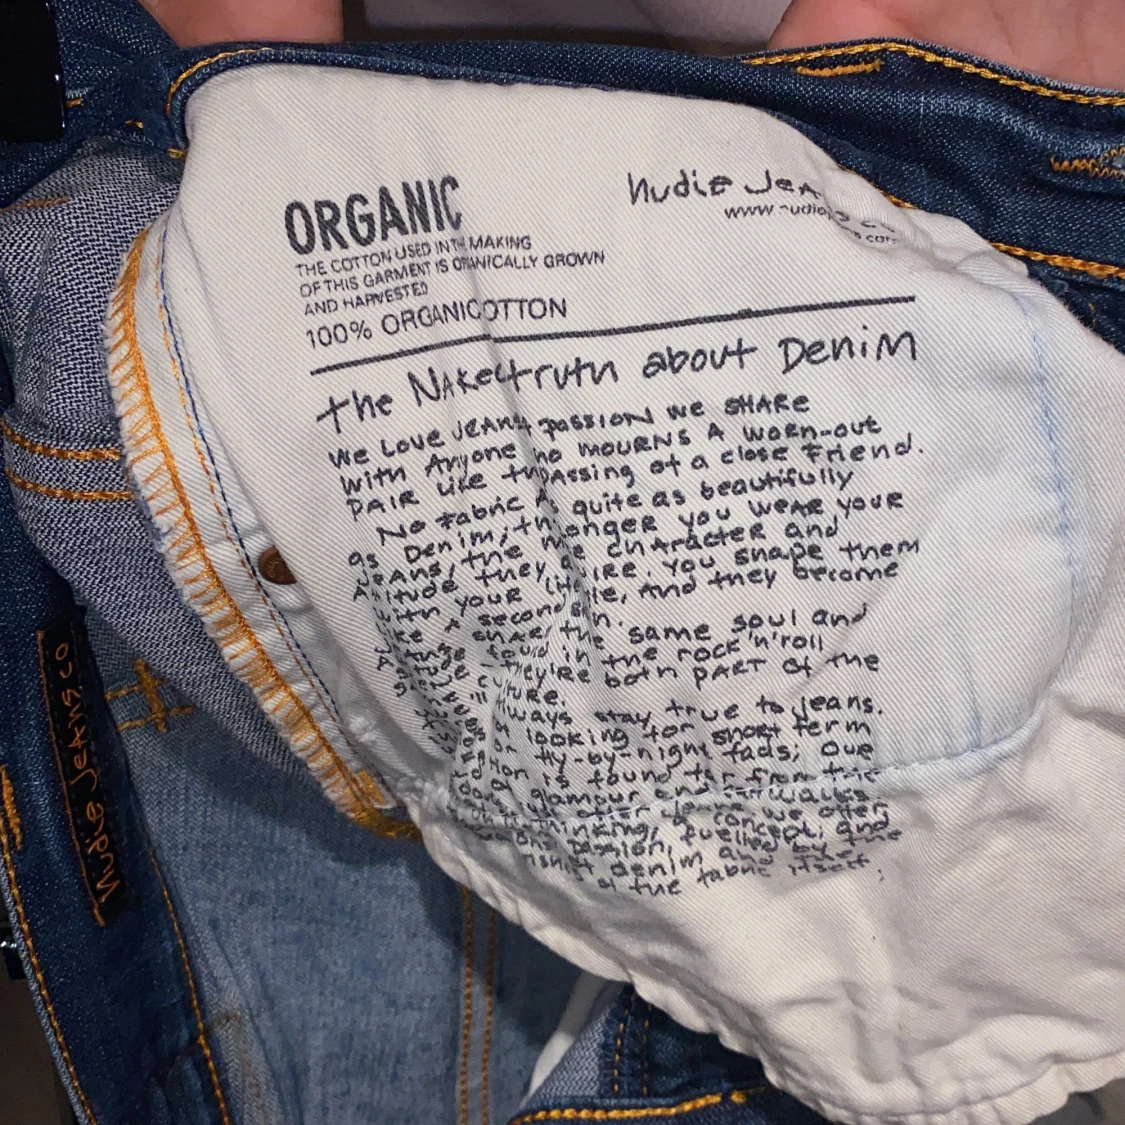 ORGANIC
THE COTTON USED IN THE MAKING
OF THIS GARMENT IS ORGANICALLY GROWN
AND HARVESTED
100% ORGANIC COTTON
Nudie Jeans co
www.nudiejeans.com
the Naked truth about Denim
We Love Jeans, passion we share
with Anyone who mourns a worn-out
pair like the passing of a close friend.
No fabric quite as beautifully
as Denim; the longer you wear your
jeans, the more character and
attitude they acquire. You shape them
with your lifestyle, and they become
like a second skin.
share the same soul and
in the rock 'n' roll
they're both part of the
culture.
always stay true to jeans.
looking for short term
fly-by-night fads; our
is found far from the
glamour and catwalks
other jeans we offer
thinking, concept, and
passion, fuelled by the
denim and by the
of the fabric itself;
Nudie Jeans co